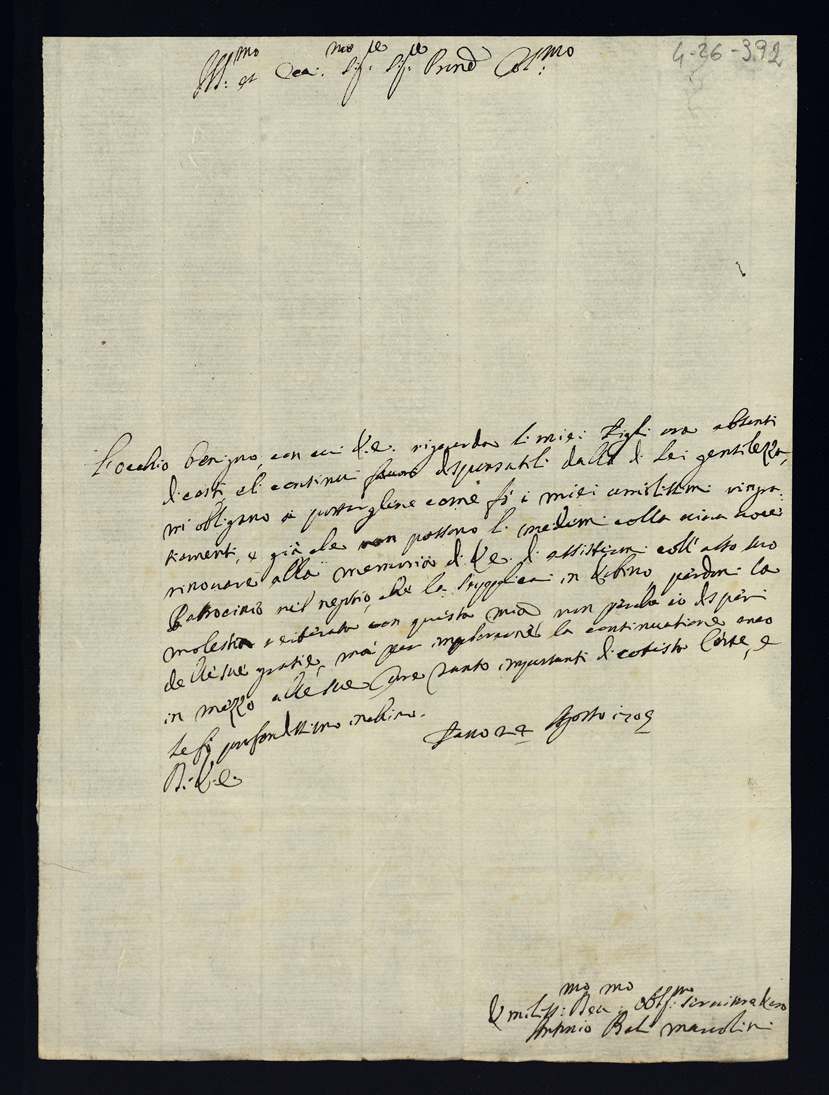 4-26-392
Ill:mo et Ecc:mo Sig:re Sig:re Pnd Col:mo
L'occhio benigno, con cui V.E. riguarda li miei Figli ora absenti
di costì, et i continui favori dispensatili dalla di Lei gentilezza,
mi obligano a porgerglene come fò i miei umilissimi ringra:
tiamenti, e già che non possono li medemi colla viva voce
rinovare alla memoria di V.E. di assistermi coll'alto suo
Patrocinio nel negotio, che la supplicai in Urbino, perdoni la
molestia reiterata con questa mia non perche io disperi
delle sue gratie, mà per implorarne la continuatione anco
in mezzo alle sue cure tanto importanti di cotesta Corte, e
le fò profondissimo inchino.
Fano 24 Agosto 1702
Di V.E.
Umiliss:mo Dev:mo Obl:mo Servitore vero
Antonio Marcolini